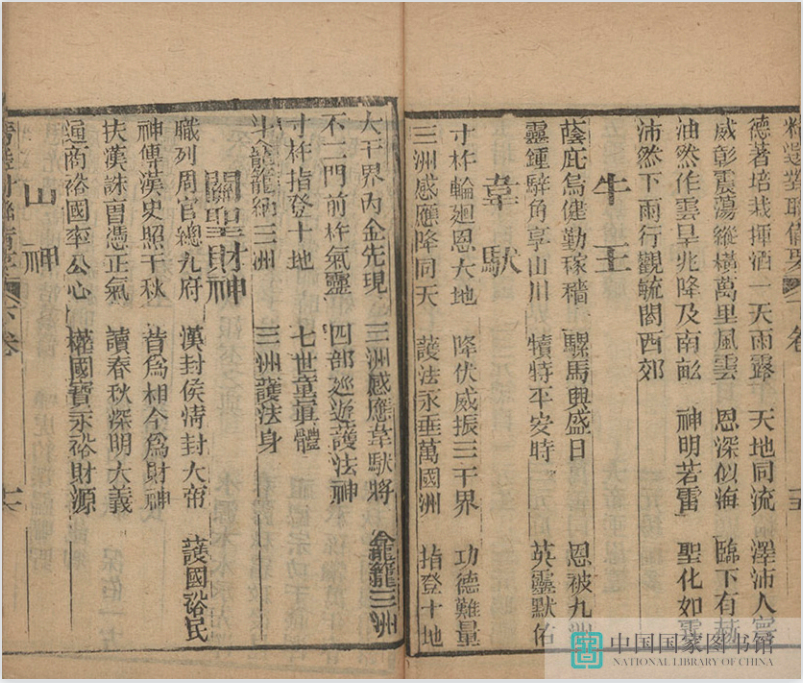 德著培栽揮洒一天雨露 天地同流 澤沛人寰
威彰震蕩縱橫萬里風雲 恩深似海 臨下有赫
油然作雲早兆降及南畝 神明若雷 聖化如霖
沛然下雨行觀毓閟西郊
牛王
蔭庇烏健勤稼穡 騾馬興盛日 恩被九洲
靈鍾騂角享山川 犢特平安時 英靈默佑
韋馱
寸杵輪迴恩大地 降伏威振三千界 功德難量
三洲感應降同天 護法永垂萬國洲 指登十地
大千界內金先現 三洲感應韋馱將 龕籠三洲
不二門前杵氣靈 四部巡遊護法神
寸杵指登十地 七世童真體
斗龕籠納三洲 三洲護法身
關聖財神
職列周官總九府 漢封侯情封大帝 護國裕民
神傳漢史照千秋 昔為相今為財神
扶漢誅曹憑正氣 讀春秋深明大義
通商裕國率公心 權國寶永裕財源
山神
下卷
十六
十五
中国国家图书馆
NATIONAL LIBRARY OF CHINA